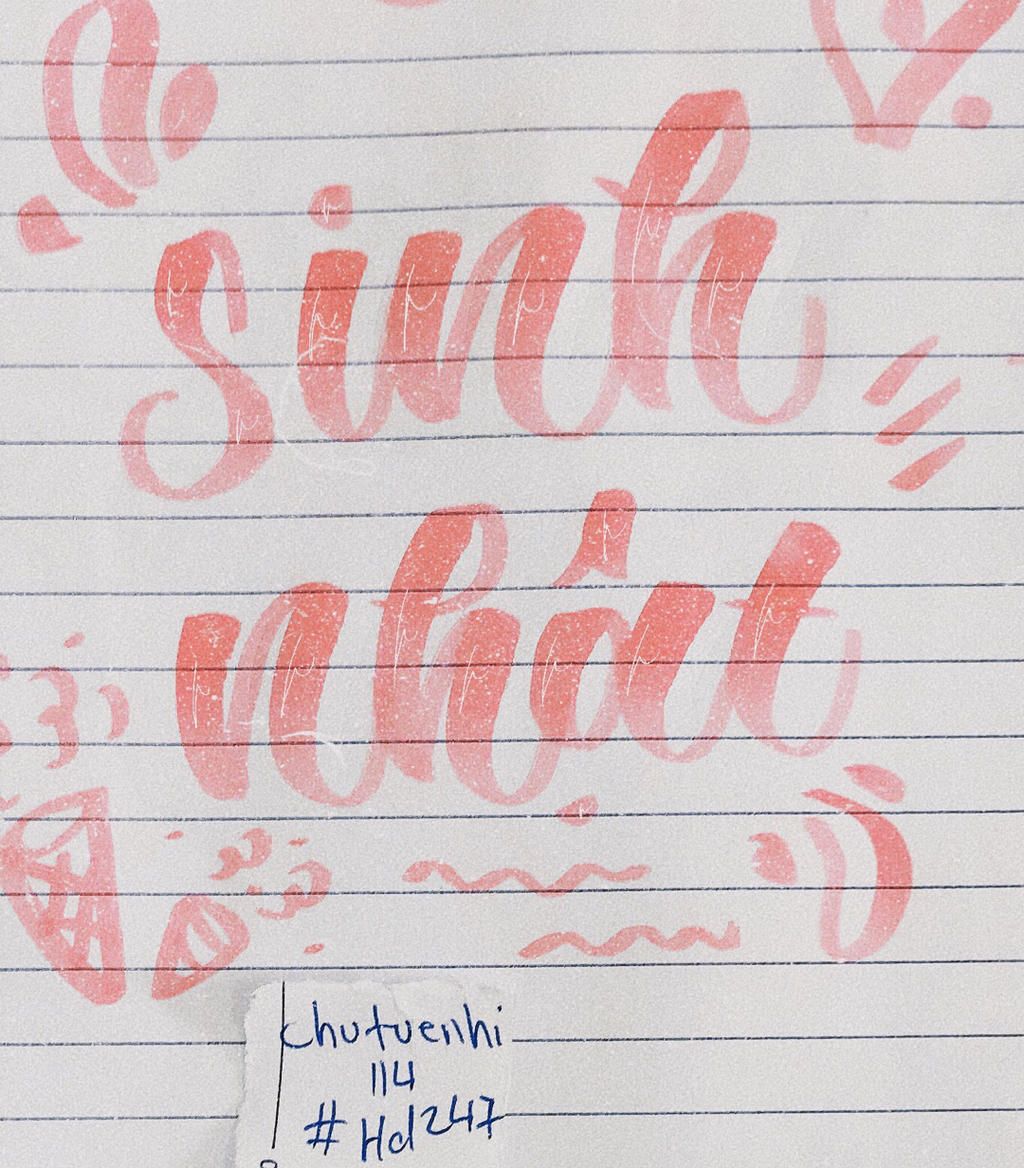 sinh
nhật
chutuenhi
114
#Hd247